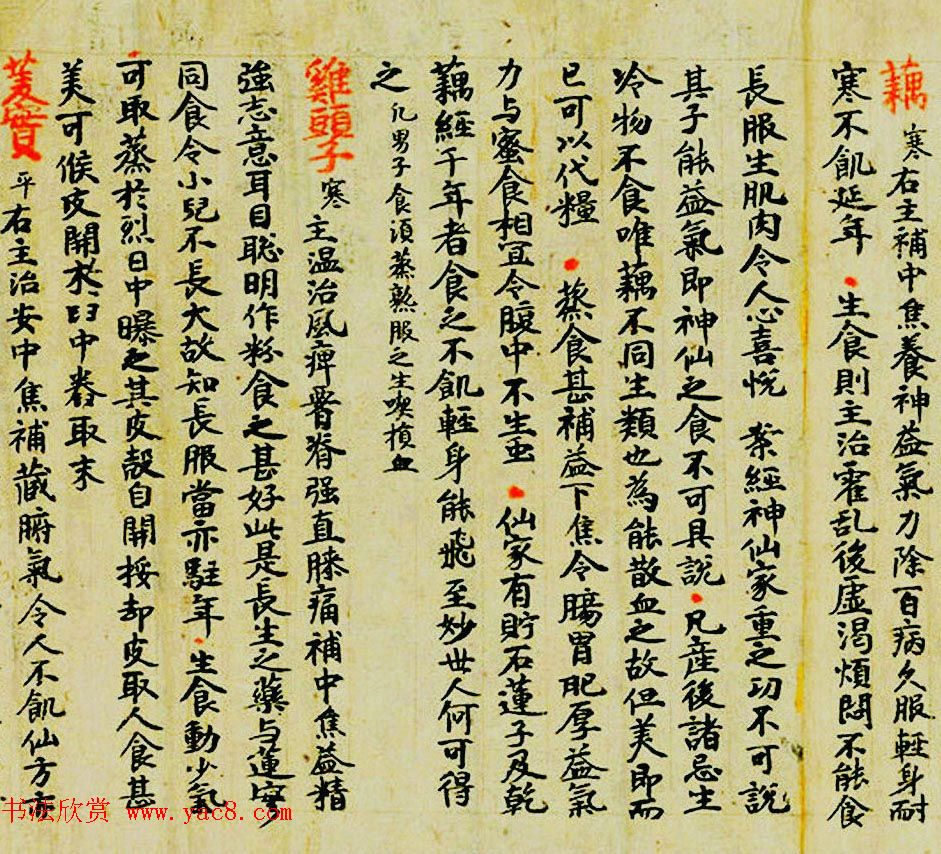 藕 寒 右主補中焦養神益氣力除百病久服輕身耐
寒不飢延年 生食則主治霍乱後虛渴煩悶不能食
長服生肌肉令人心喜悅 案經神仙家重之功不可說
其子能益氣即神仙之食不可具說 凡產後諸忌生
冷物不食唯藕不同生類也為能散血之故但美即而
已可以代糧 蒸食甚補益下焦令腸胃肥厚益氣
力与蜜食相宜令腹中不生虫 仙家有貯石蓮子及乾
藕經千年者食之不飢輕身能飛至妙世人何可得
之 凡男子食須蒸熟服之生喫損血
雞頭子 寒 主温治風痺署脊強直膝痛補中焦益精
強志意耳目聡明作粉食之甚好此是長生之藥与蓮實
同食令小兒不長大故知長服當亦駐年 生食動少氣
可取蒸於烈日中曝之其皮殼自開挼却皮取人食甚
美可候皮開於臼中舂取末
菱實 平 右主治安中焦補藏腑氣令人不飢仙方亦
书法欣赏 www.yac8.com